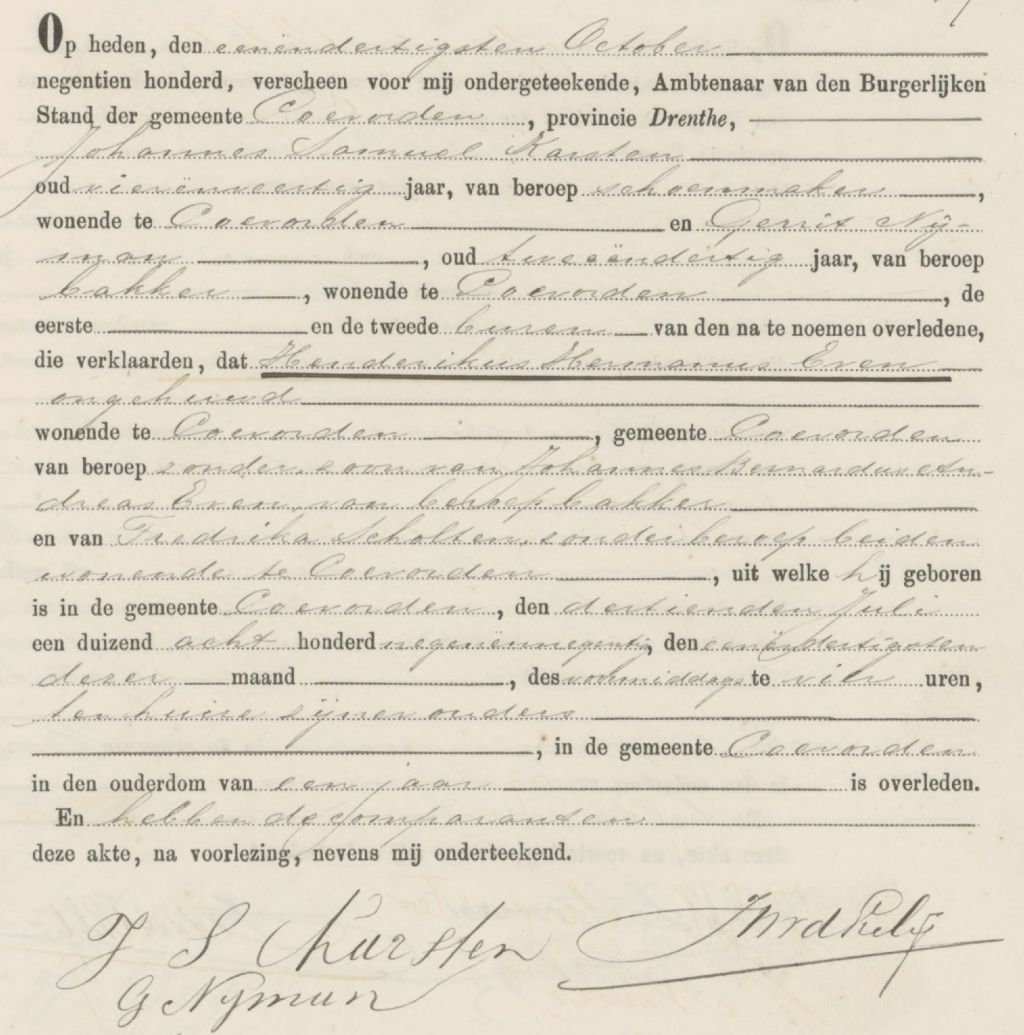 Op heden, den eenëndertigsten October
negentien honderd, verscheen voor mij ondergeteekende, Ambtenaar van den Burgerlijken
Stand der gemeente Coevorden, provincie Drenthe,
Johannes Samuel Karsten
oud vierënveertig jaar, van beroep schoenmaker,
wonende te Coevorden en Gerrit Nij-
man, oud tweeëndertig jaar, van beroep
bakker, wonende te Coevorden, de
eerste en de tweede buren van den na te noemen overledene,
die verklaarden, dat Henderikus Hermannus Even
ongehuwd
wonende te Coevorden, gemeente Coevorden
van beroep zonder, zoon van Johannes Bernardus An-
dreas Even, van beroep bakker
en van Fredrika Scholten, zonder beroep beiden
wonende te Coevorden, uit welke hij geboren
is in de gemeente Coevorden, den dertienden Juli
een duizend acht honderd negenënnegentig, den eenëndertigsten
dezer maand, des voormiddags te vier uren,
ten huize zijner ouders
, in de gemeente Coevorden
in den ouderdom van een jaar is overleden.
En hebben de comparanten
deze akte, na voorlezing, nevens mij onderteekend.
J S Karsten
G Nyman